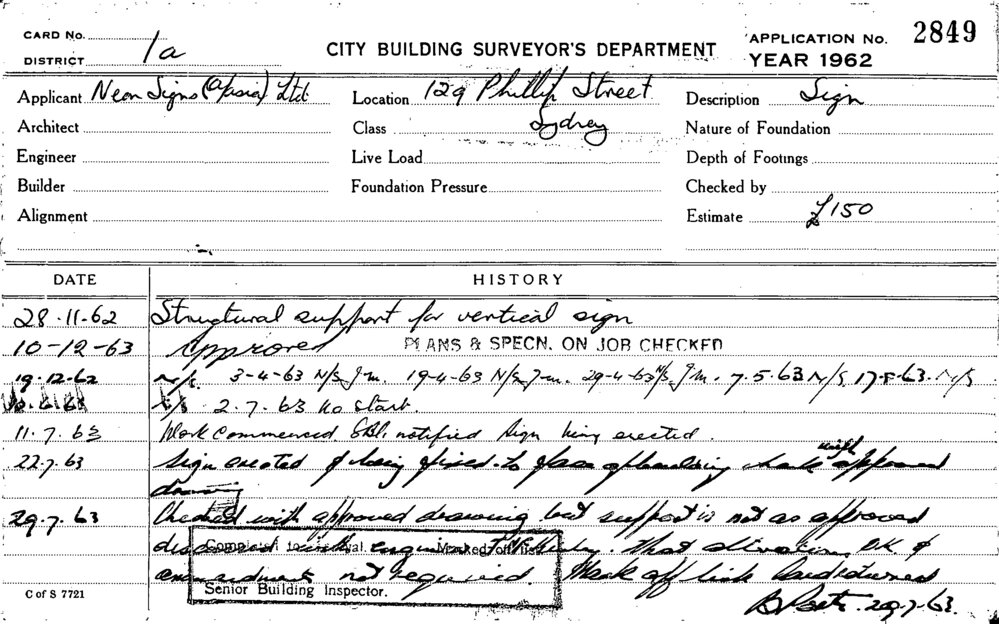 CARD No.
DISTRICT 1a
CITY BUILDING SURVEYOR'S DEPARTMENT
APPLICATION No. 2849
YEAR 1962
Applicant Neon Signs (A/asia) Ltd
Location 129 Phillip Street
Sydney
Description Sign
Architect
Class
Nature of Foundation
Engineer
Live Load
Depth of Footings
Builder
Foundation Pressure
Checked by
Alignment
Estimate £150
DATE HISTORY
28.11.62 Structural support for vertical sign
10-12-63 Approved PLANS & SPECN. ON JOB CHECKED
19.12.62 N/S. 3-4-63 N/S J-m. 19-4-63 N/S J-m. 29-4-63 N/S J-m. 7.5.63 N/S 17-5-63. N/S
N/S 2.7.63 No start.
11.7.63 Work commenced notified sign being erected.
22.7.63 Sign erected & being fixed to of building check with approved
drawing
29.7.63 Checked with approved drawing but support is not as approved
discussed with engineer that alteration OK &
amendment not required. Mark off card returned
Completed Marked off list
Senior Building Inspector.
29.7.63.
C of S 7721